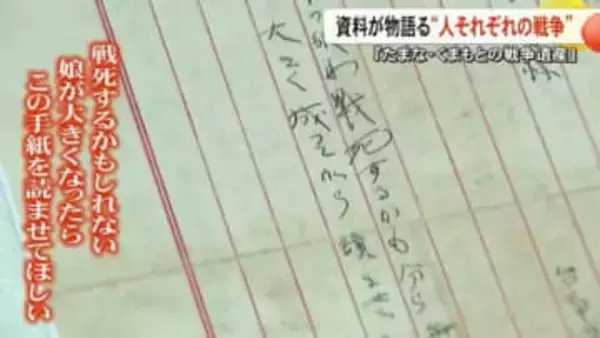 資料が物語る“人それぞれの戦争”
『たまな・くまもとの戦争遺産』
戦死するかも分ら
大きく成
から
戦死するかもしれない
娘が大きくなったら
この手紙を読ませてほしい